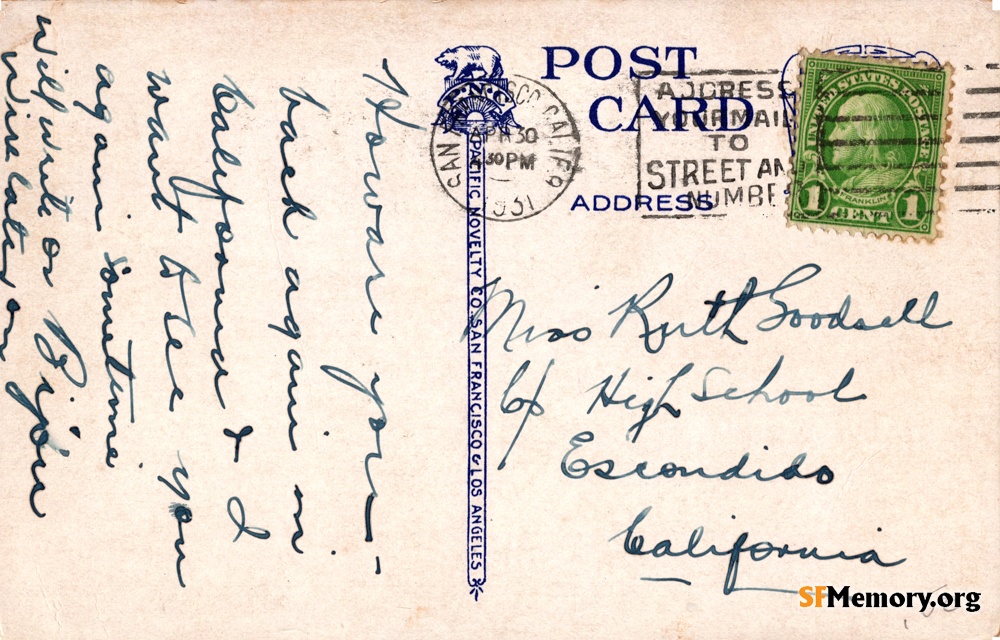 POST CARD
ADDRESS
P.N.C.
PACIFIC NOVELTY CO. SAN FRANCISCO & LOS ANGELES
SAN FRANCISCO, CALIF.
APR 30
30 PM
1931
ADDRESS
YOUR MAIL
TO
STREET AND
NUMBE
UNITED STATES POSTAGE
FRANKLIN
1 CENT 1
How are you —
back again in
California & I
want to see you
again sometime
will write or
wire later on
Bijou
Miss Ruth Goodsell
c/o High School
Escondido
California
SFMemory.org